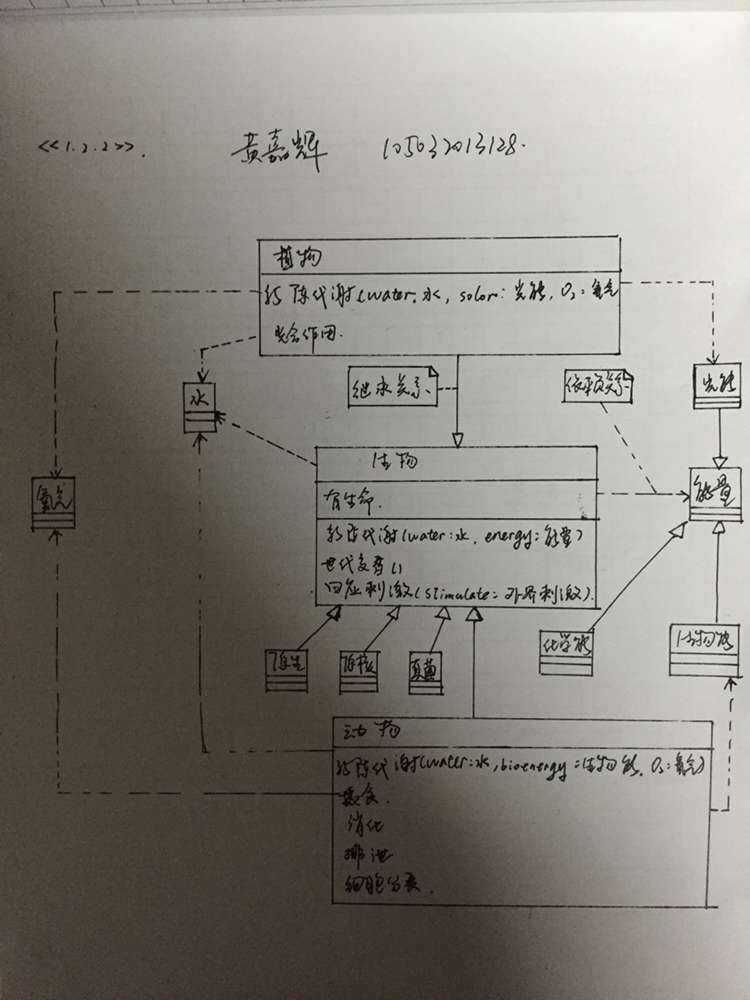 <<1.2.2>>. 黄嘉辉 105032013128.
植物
新陈代谢(water:水, solar:光能, O₂:氧气
光合作用.
继承关系
依赖关系
光能
水
生物
能量
氧气
有生命.
新陈代谢(water:水, energy:能量)
世代交替()
回应刺激(stimulate:外界刺激).
原生
原核
真菌
化学能
生物能
动物
新陈代谢(water:水,bioenergy:生物能, O₂:氧气)
摄食.
消化
排泄
细胞分裂.